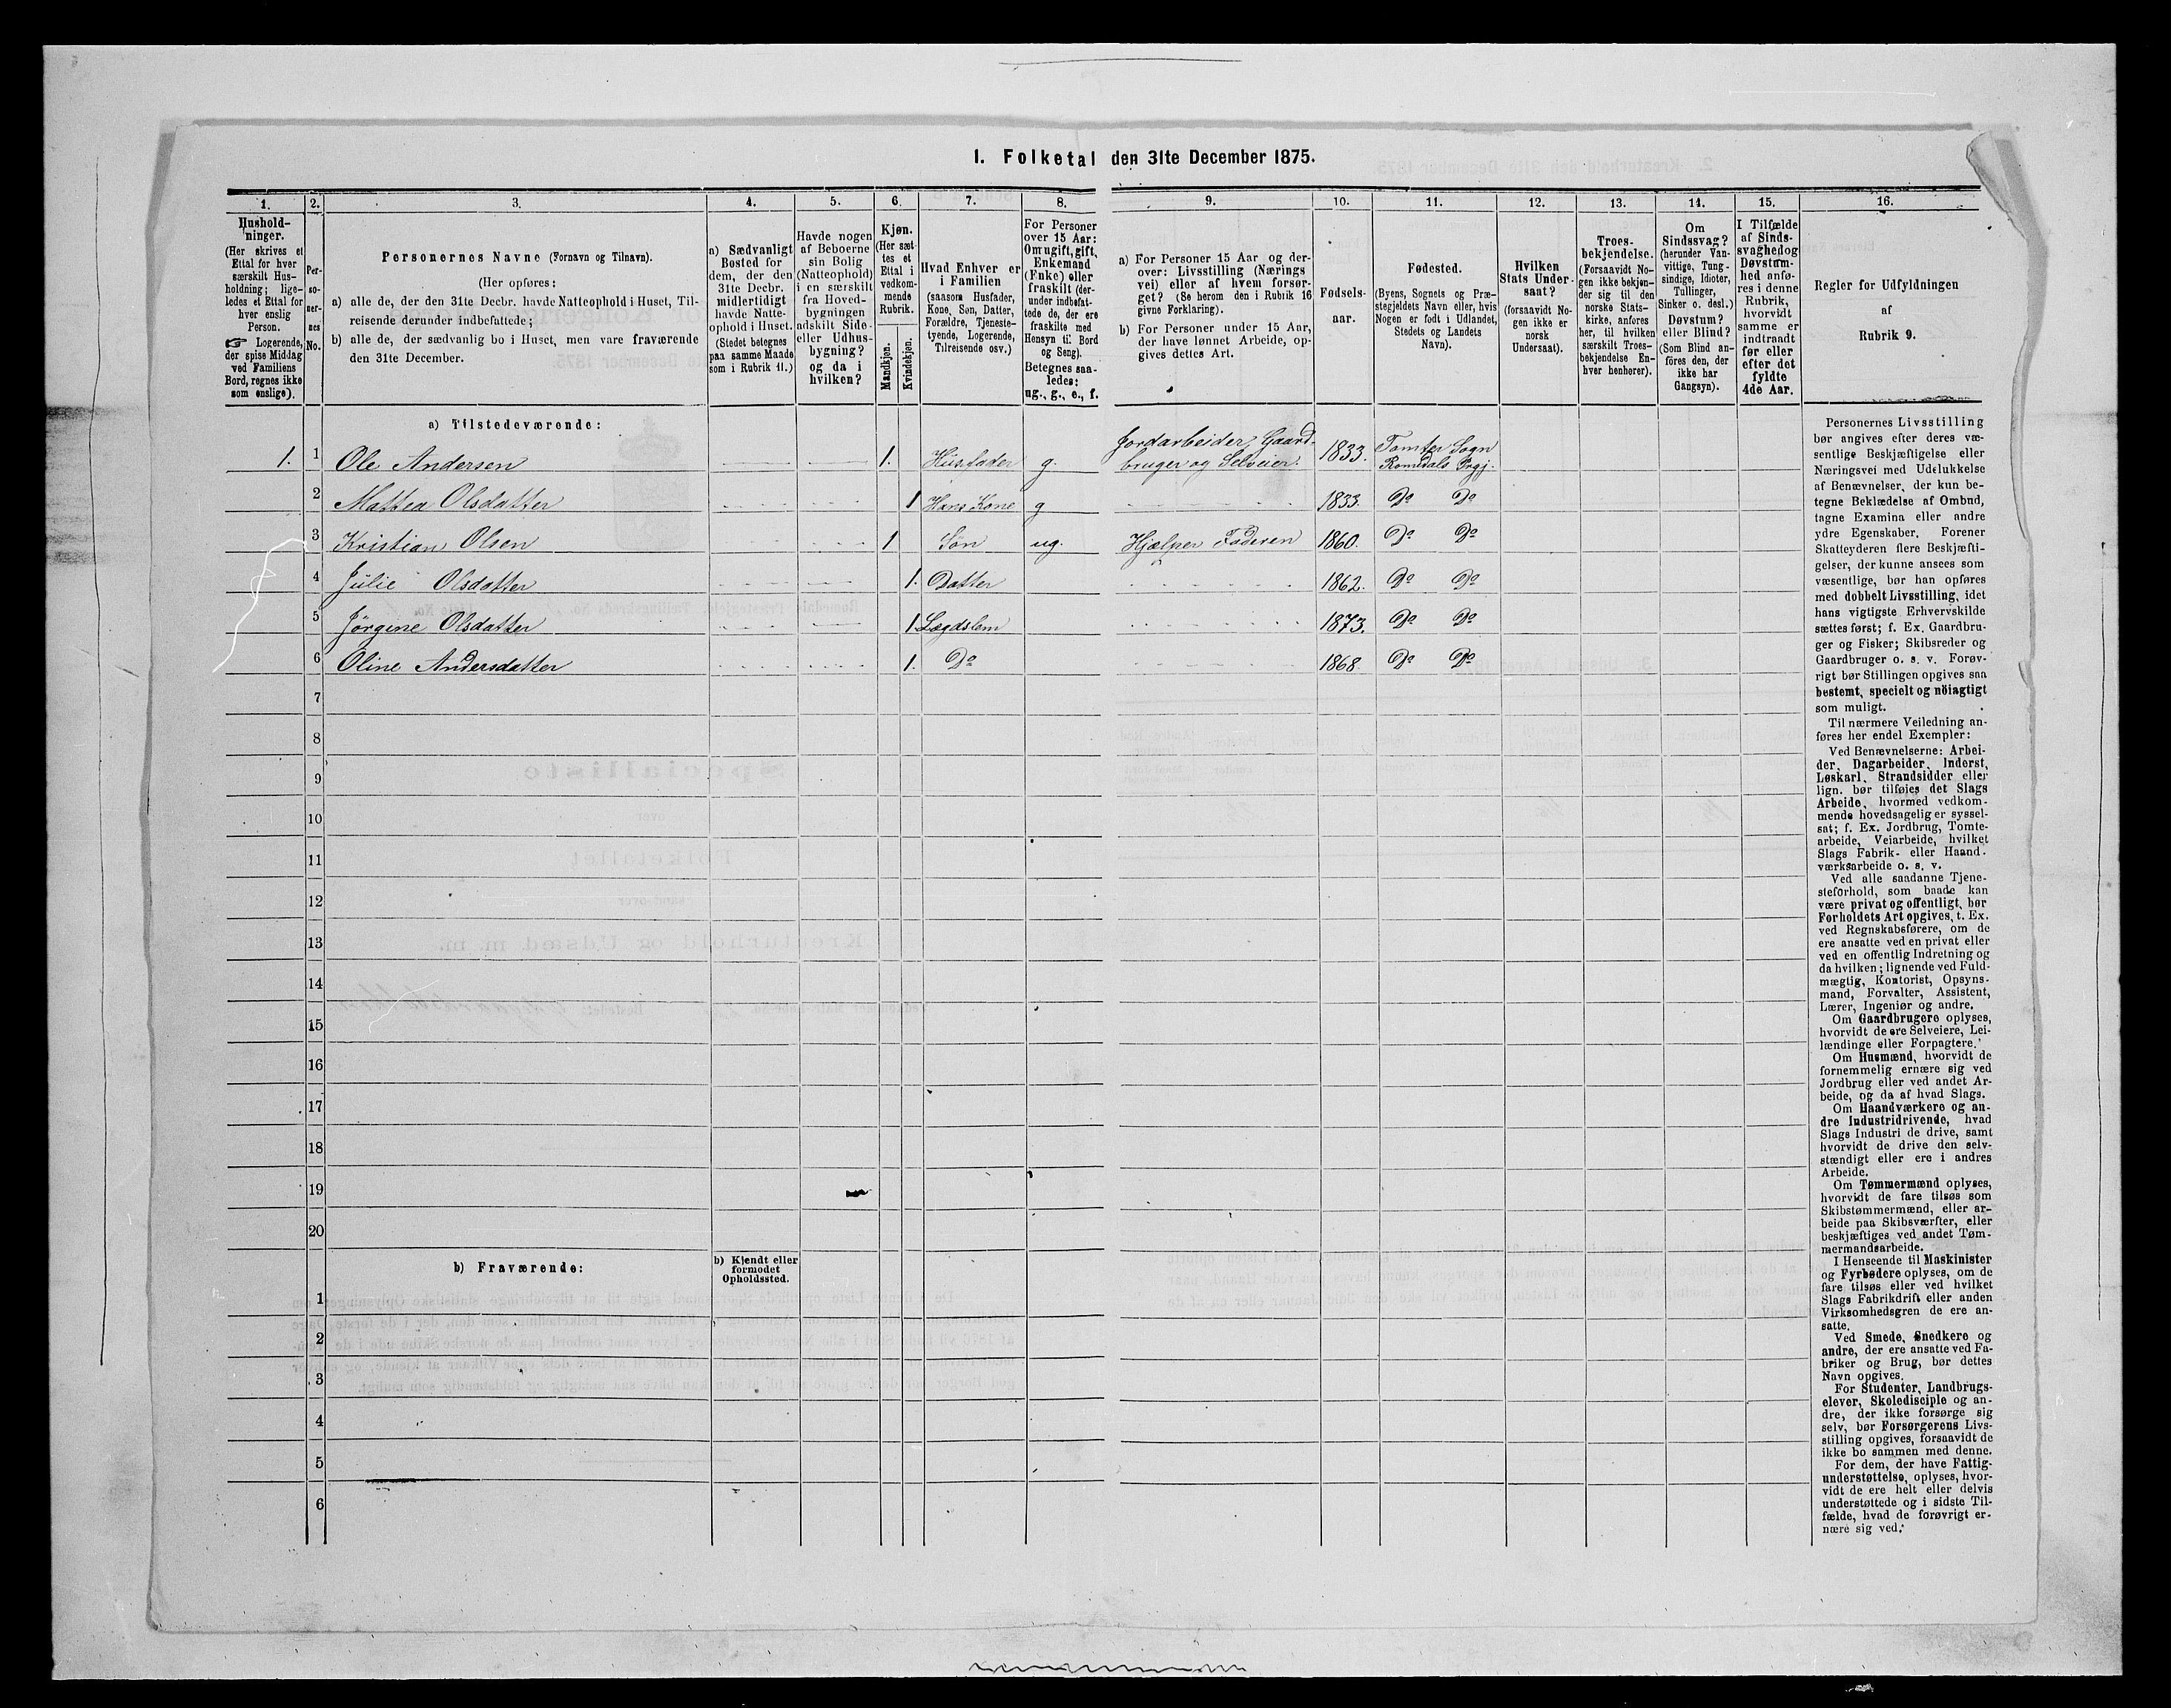 1. Folketal den 31te December 1875.
1. 2. 3. 4. 5. 6. 7. 8. 9. 10. 11. 12. 13. 14. 15. 16.
Hushold-
ninger.
(Her skrives et
Ettal for hver
særskilt Hus-
holdning; lige-
ledes et Ettal for
hver enslig
Person.
☞ Logerende,
der spise Middag
ved Familiens
Bord, regnes ikke
som enslige).
Per-
so-
ner-
nes
No.
Personernes Navne (Fornavn og Tilnavn).
(Her opføres:
a) alle de, der den 31te Decbr. havde Natteophold i Huset, Til-
reisende derunder indbefattede;
b) alle de, der sædvanlig bo i Huset, men vare fraværende
den 31te December.
a) Sædvanligt
Bosted for
dem, der den
31te Decbr.
midlertidigt
havde Natte-
ophold i Huset.
(Stedet betegnes
paa samme Maade
som i Rubrik 11.)
Havde nogen
af Beboerne
sin Bolig
(Natteophold)
i en særskilt
fra Hoved-
bygningen
adskilt Side-
eller Udhus-
bygning?
og da i
hvilken?
Kjøn.
(Her sæt-
tes et
Ettal i
vedkom-
mende
Rubrik.
Mandkjøn.
Kvindekjøn.
Hvad Enhver er
i Familien
(saasom Husfader,
Kone, Søn, Datter,
Forældre, Tjeneste-
tyende, Logerende,
Tilreisende osv.)
For Personer
over 15 Aar:
Om ugift, gift,
Enkemand
(Enke) eller
fraskilt (der-
under indbefat-
tede de, der ere
fraskilte med
Hensyn til Bord
og Seng).
Betegnes saa-
ledes:
ug., g., e., f.
a) For Personer 15 Aar og der-
over: Livsstilling (Nærings
vei) eller af hvem forsør-
get? (Se herom den i Rubrik 16
givne Forklaring).
b) For Personer under 15 Aar,
der have lønnet Arbeide, op-
gives dettes Art.
Fødsels-
aar.
Fødested.
(Byens, Sognets og Præ-
stegjeldets Navn eller, hvis
Nogen er født i Udlandet,
Stedets og Landets
Navn).
Hvilken
Stats Under-
saat?
(forsaavidt No-
gen ikke er
norsk
Undersaat).
Troes-
bekjendelse.
(Forsaavidt No-
gen ikke bekjen-
der sig til den
norske Stats-
kirke, anføres
her, til hvilken
særskilt Troes-
bekjendelse En-
hver henhører).
Om
Sindssvag?
(herunder Van-
vittige, Tung-
sindige, Idioter,
Tullinger,
Sinker o. desl.)
Døvstum?
eller Blind?
(Som Blind an-
føres den, der
ikke har
Gangsyn).
I Tilfælde
af Sinds-
svaghed og
Døvstum-
hed anfø-
res i denne
Rubrik,
hvorvidt
samme er
indtraadt
før eller
efter det
fyldte
4de Aar.
Regler for Udfyldningen
af
Rubrik 9.
a) Tilstedeværende:
1. 1 Ole Andersen 1. Husfader g. Jordarbeider, Gaard-
bruger og Selveier. 1833. Tomter Sogn
Romedals Prgj.
2 Mattea Olsdatter 1 Hans Kone g 1833. Do Do
3 Kristian Olsen 1 Søn ug. Hjælper Faderen 1860. Do Do
4 Julie Olsdatter 1. Datter 1862. Do Do
5 Jörgine Olsdatter 1 Lægdslem 1873. Do Do
6 Oline Andersdatter 1. Do 1868. Do Do
7
8
9
10
11
12
13
14
15
16
17
18
19
20
b) Fraværende:
b) Kjendt eller
formodet
Opholdssted.
1
2
3
4
5
6
Personernes Livsstilling
bør angives efter deres væ-
sentlige Beskjæftigelse eller
Næringsvei med Udelukkelse
af Benævnelser, der kun be-
tegne Beklædelse af Ombud,
tagne Examina eller andre
ydre Egenskaber. Forener
Skatteyderen flere Beskjæfti-
gelser, der kunne ansees som
væsentlige, bør han opføres
med dobbelt Livsstilling, idet
hans vigtigste Erhvervskilde
sættes først; f. Ex. Gaardbru-
ger og Fisker; Skibsreder og
Gaardbruger o. s. v. Forøv-
rigt bør Stillingen opgives saa
bestemt, specielt og nöiagtigt
som muligt.
Til nærmere Veiledning an-
føres her endel Exempler:
Ved Benævnelserne: Arbei-
der, Dagarbeider, Inderst,
Løskarl, Strandsidder eller
lign. bør tilføies det Slags
Arbeide, hvormed vedkom-
mende hovedsagelig er syssel-
sat; f. Ex. Jordbrug, Tomte-
arbeide, Veiarbeide, hvilket
Slags Fabrik- eller Haand-
værksarbeide o. s. v.
Ved alle saadanne Tjene-
steforhold, som baade kan
være privat og offentligt, bør
Forholdets Art opgives, t. Ex.
ved Regnskabsførere, om de
ere ansatte ved en privat eller
ved en offentlig Indretning og
da hvilken; lignende ved Fuld-
mægtig, Kontorist, Opsyns-
mand, Forvalter, Assistent,
Lærer, Ingeniør og andre.
Om Gaardbrugere oplyses,
hvorvidt de ere Selveiere, Lei-
lændinge eller Forpagtere.
Om Husmænd, hvorvidt de
fornemmelig ernære sig ved
Jordbrug eller ved andet Ar-
beide, og da af hvad Slags.
Om Haandværkere og an-
dre Industridrivende, hvad
Slags Industri de drive, samt
hvorvidt de drive den selv-
stændigt eller ere i andres
Arbeide.
Om Tømmermænd oplyses,
hvorvidt de fare tilsøs som
Skibstømmermænd, eller ar-
beide paa Skibsværfter, eller
beskjæftiges ved andet Tøm-
mermandsarbeide.
I Henseende til Maskinister
og Fyrbødere oplyses, om de
fare tilsøs eller ved hvilket
Slags Fabrikdrift eller anden
Virksomhedsgren de ere an-
satte.
Ved Smede, Snedkere og
andre, der ere ansatte ved Fa-
briker og Brug, bør dettes
Navn opgives.
For Studenter, Landbrugs-
elever, Skoledisciple og an-
dre, der ikke forsørge sig
selv, bør Forsørgerens Livs-
stilling opgives, forsaavidt de
ikke bo sammen med denne.
For dem, der have Fattig-
understøttelse, oplyses, hvor-
vidt de ere helt eller delvis
understøttede og i sidste Til-
fælde, hvad de forøvrigt er-
nære sig ved.